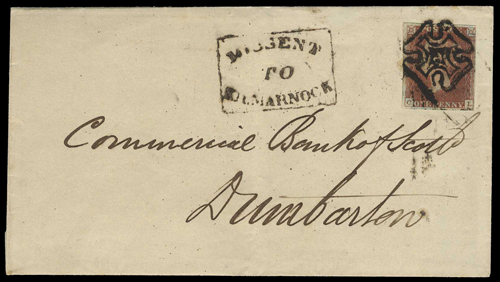 MISSENT
TO
KILMARNOCK
ONE PENNY
Commercial Bank of Scotd
Dumbarton